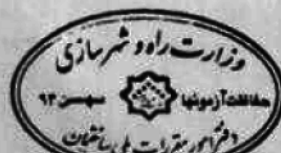 وزارت راه و شهرسازی
مقامات آزمونها بهمن ۹۳
دفتر امور مقررات ملی ساختمان